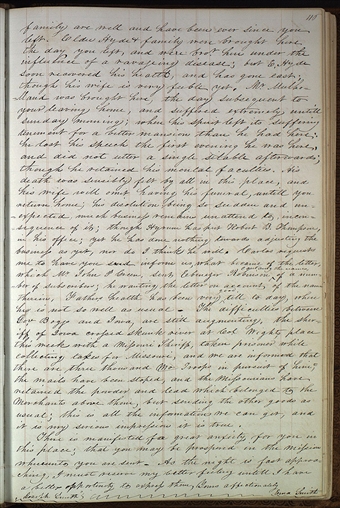 111
family are well and have been ever since you
left. Elder Hyde's family were brought here
the day you left, and were bro't here under the
influence of a ravaging disease; but E. Hyde
soon recovered his health, and has gone east;
though his wife is very feeble yet, Mr. Mulhol-
land was brought here, the day subsequent to
your leaving home; and suffered extremely, until
sunday morning; when his spirit left its suffering
tenement for a better mansion than he had here;
he lost his speech the first evening he was here,
and did not utter a single sylable afterwards;
though he retained his mental faculties. His
death was sensibly felt by all in the place, and
his wife will omit having his funeral, until you
return home; his desolution being so sudden and un-
expected, much business remains unattend to, in con-
sequence of it; though Hyrum has put Robt B. Thompson,
in his office; yet he has done nothing towards adjusting the
business as yet, nor do I think he will. Carlos requests
me to have you inform us, what became of the letter,
which Mr. John P. Green sent, Ebenezer Robinson, of a num-
ber of subscribers; he wanting the letter on account, of the names
therein. Father's health has been very till to day, when
he is not so well as usual — The difficulties between
Gov Boggs and Iowa, are still augmenting, the sher-
iff of Iowa, crossed Skunk river at Col Wrights place
this week with a Missouri Sheriff, taken prisoner while
collecting taxes for Missouri, and we are informed that
there are three thousand Mo. Troops in pursuit of him;
the mails have been stoped, and the Missourians have
retained the powder and lead which belonged to the
Merchants above them, but sending the other goods as
usual; this is all the information we can get, and
it is my serious impression it is true.
There is manifested a great anxiety for you in
this place; that you may be prospered in the Mission
whereunto you are sent. As the night is fast approa-
ching, I must reserve my better feelings untill I have
a better oppertunity to express them. Yours affectionately
Joseph Smith Emma Smith